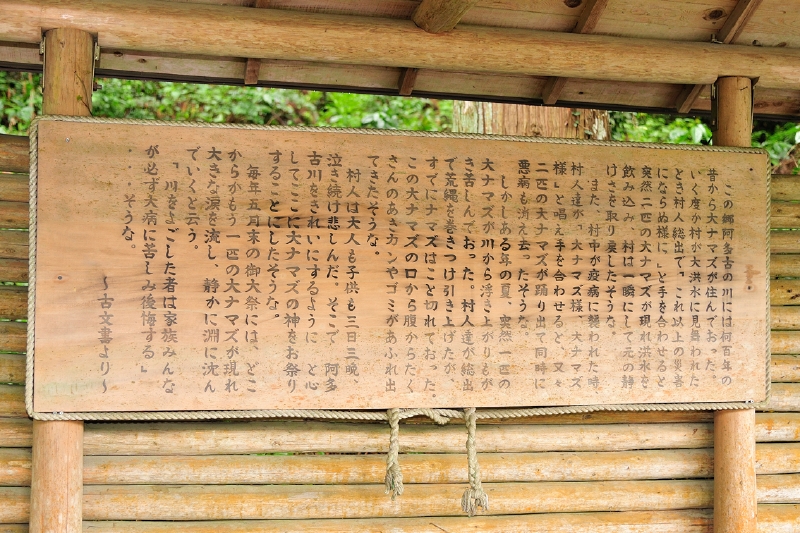 この郷阿多古の川には何百年の
昔から大ナマズが住んでおった。
いく度か村が大洪水に見舞われた
とき村人総出で「これ以上の災害
にならぬ様に」と手を合わせると
突然二匹の大ナマズが現れ洪水を
飲み込み、村は一瞬にして元の静
けさを取り戻したそうな。
また、村中が疫病に襲われた時
村人達が「大ナマズ様、大ナマズ
様」と唱え手を合わせると、又々
二匹の大ナマズが踊り出て同時に
悪病も消え去ったそうな。
しかしある年の夏、突然一匹の
大ナマズが川から浮き上がりもが
き苦しんでおった。村人達が総出
で荒縄を巻きつけ引き上げたが、
すでにナマズはこと切れておった
この大ナマズの口から腹からたく
さんのあきカンやゴミがあふれ出
てきたそうな。
村人は大人も子供も三日三晩、
泣き続け悲しんだ。そこで、阿多
古川をきれいにするように、と心
してここに大ナマズの神をお祭り
することにしたそうな。
毎年五月末の御大祭には、どこ
からかもう一匹の大ナマズが現れ
大きな涙を流し、静かに淵に沈ん
でいくと云う。
「川をよごした者は家族みんな
が必ず大病に苦しみ後悔する」
・・そうな。
〜古文書より〜